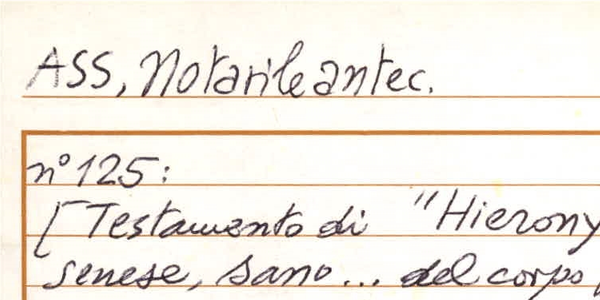 ASS, Notarile antec.
n° 125:
[Testamento di "Hierony
senese, sano... del corpo